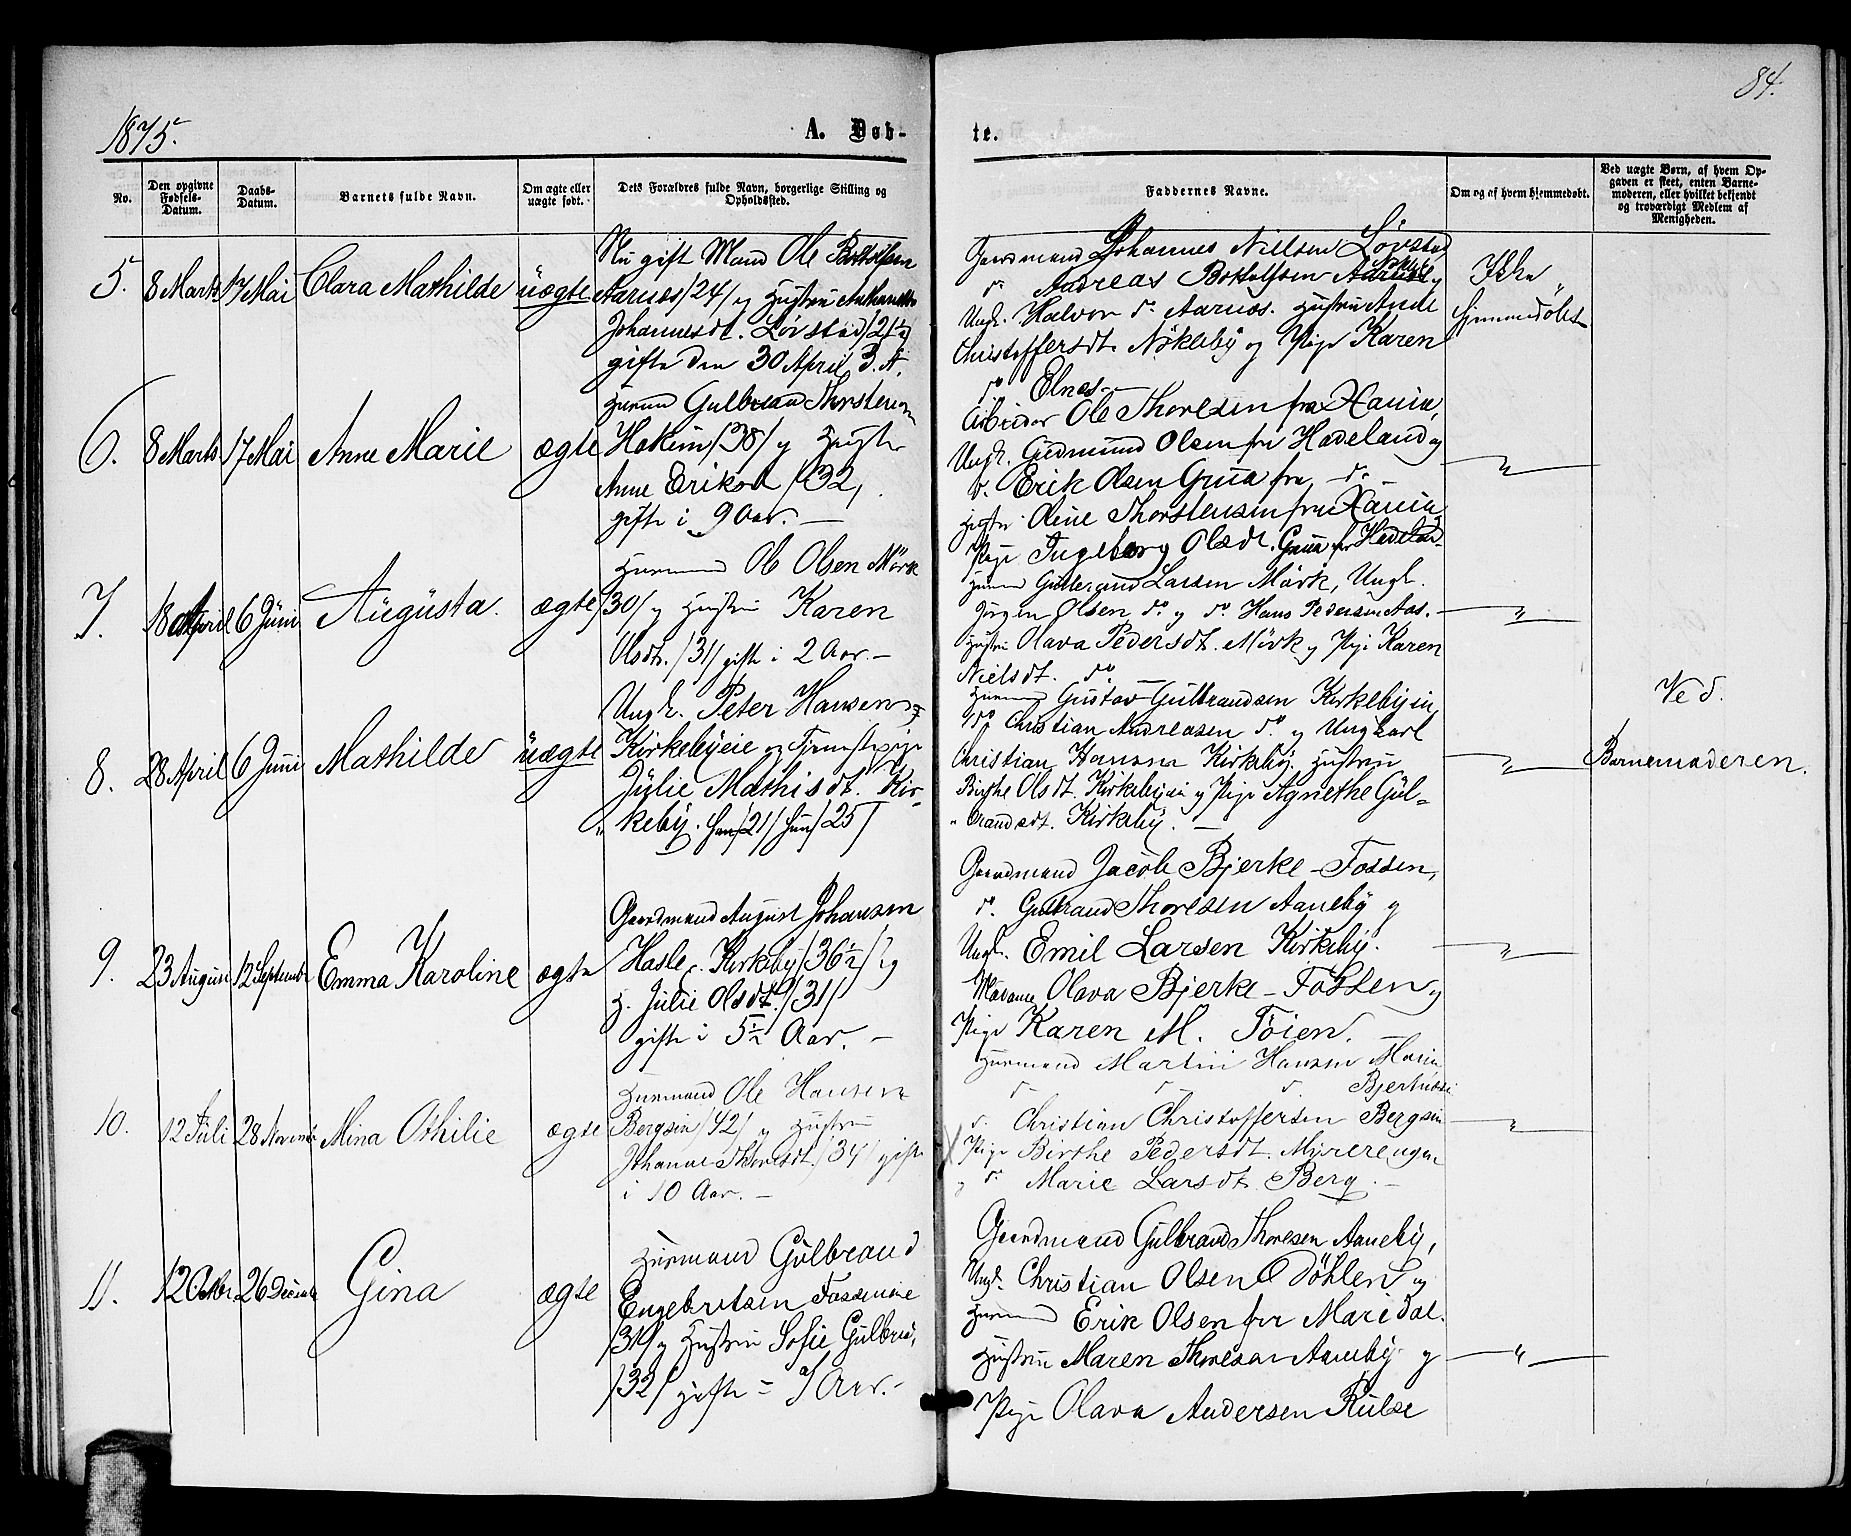 84.
1875.
A. Døb-
te.
No.
Den opgivne Fødsels-Datum.
Daabs-Datum.
Barnets fulde Navn.
Om ægte eller uægte født.
Dets Forældres fulde Navn, borgerlige Stilling og Opholdssted.
Faddernes Navne.
Om og af hvem hjemmedøbt.
Ved uægte Børn, af hvem Opgaven er skeet, enten Barnemoderen, eller hvilket bekjendt og troværdigt Medlem af Menigheden.
5. 8 Marts 17 Mai Clara Mathilde üægte
Nu gift Mand Ole Botolfsen
Aarnæs /24/ og Hustru
Johannesdt. Løvstad /21½/
gifte den 30 April d. A.
Gaardmand Johannes Nielsen Løvstad
do. Andreas Botolfsen
Ungk. Halvor do. Aarnæs. Hustru Ande
Christoffersdt. Nökleby og Pige Karen
do. Elnes.
Ikke
hjemmedöbt
6. 8 Marts 17 Mai Anne Marie ægte
Huusmd Gulbrand Thorstensen
Hakim /38/ og Hustru
Anne Eriksd /32/.
gifte i 9 Aar. —
Arbeider Ole Thoresen fra Xania,
Ungk. Gudmund Olsen fra Hadeland og
do. Erik Olsen Grua fra do.
Hustru Oline Thorstensen fra Xania,
Pige Ingeborg Olsdt. Grua fr Hadeland
— " —
7. 18 April 6 Jüni Aügüsta. ægte
Huusmand Ole Olsen Mörk
/30/ og Hustru Karen
Olsdt. /31/ gifte i 2 Aar. —
Huusmd Gulbrand Larsen Mörk, Ungk.
Jörgen Olsen do. og do. Hans Pedersen Aas.
Hustru Olava Pedersdt. Mörk og Pige Karen
Nielsdt. do.
— " —
8. 28 April 6 Juni Mathilde üægte
Ungk. Peter Hansen
Kirkebyeie og Tjenestepige
Jülie Mathisdt. Kir-
keby. han /21/ hun /25/
Huusmand Gustav Gulbrandsen Kirkebyein,
do Christian Andreasen do. og Ungkarl
Christian Hansen Kirkeby. Hustru
Birthe Olsdt. Kirkebyei og Pige Agnethe Gül-
brandsdt. Kirkeby. —
— " —
Ved
Barnemoderen.
9. 23 August 12 September Emma Karoline ægte
Gaardmand August Johansen
Hasle, Kirkeby /36½/ og
H. Jülie Olsdt. /31/
gifte i 5½ Aar. —
Gaardmand Jacob Bjerke-Fossen,
do. Gulbrand Thoresen Aaneby og
Ungk. Emil Larsen Kirkeby.
Madame Olava Bjerke-Fossen og
Pige Karen M. Töien. —
— " —
10. 12 Jüli 28 November Mina Othilie ægte
Huusmand Ole Hansen
Bergsein /42/ og Hustru
Johanne Thoresdt. /34/ gifte
i 10 Aar. —
Huusmand Martin Hansen
do. do. do.
do. Christian Christoffersen Bergsein
Pige Birthe Pedersdt. Myrerengen
og do. Marie Larsdt. Berg. —
— " —
11. 12 Oktbr 26 Decembr Gina ægte
Huusmand Gülbrand
Engebretsen Fosseneie
/31/ og Hustru Sofie Gülbr.,
/32/ gifte = 7 Aar. —
Gaardmand Gulbrand Thoresen Aaneby,
Ungk. Christian Olsen Döhlen og
Huusmand Erik Olsen fra Maridal.
Hustru Maren Thoresen Aaneby og
Pige Olava Andersen Rülse
— " —